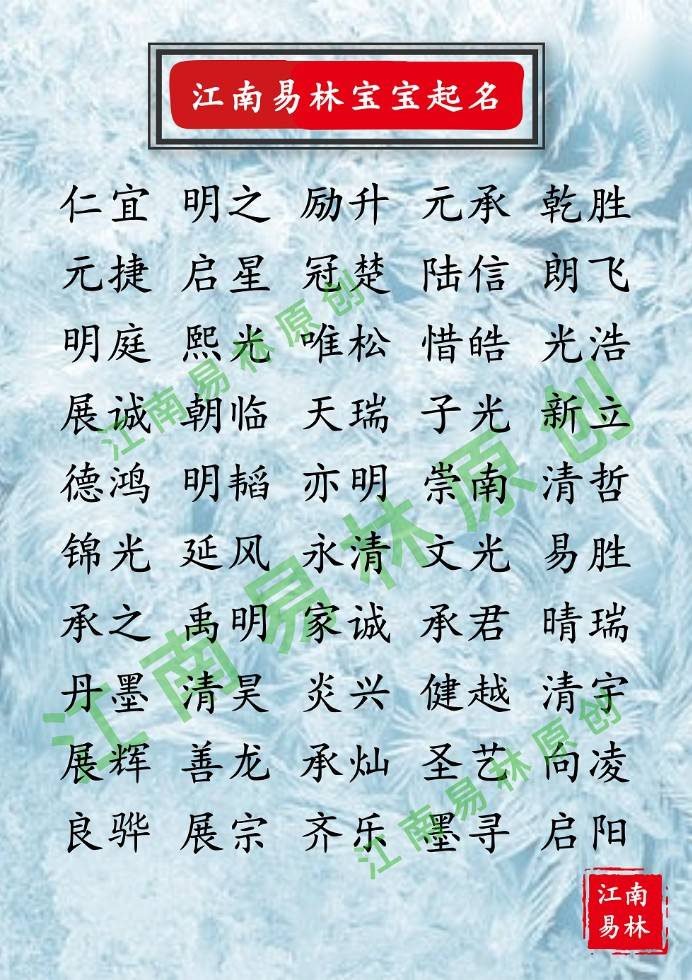 江南易林宝宝起名
仁宜 明之 励升 元承 乾胜
元捷 启星 冠楚 陆信 朗飞
明庭 熙光 唯松 惜皓 光浩
展诚 朝临 天瑞 子光 新立
德鸿 明韬 亦明 崇南 清哲
锦光 延风 永清 文光 易胜
承之 禹明 家诚 承君 晴瑞
丹墨 清昊 炎兴 健越 清宇
展辉 善龙 承灿 圣艺 向凌
良骅 展宗 齐乐 墨寻 启阳
江南易林原创
江南易林原创
江南易林原创
江南
易林